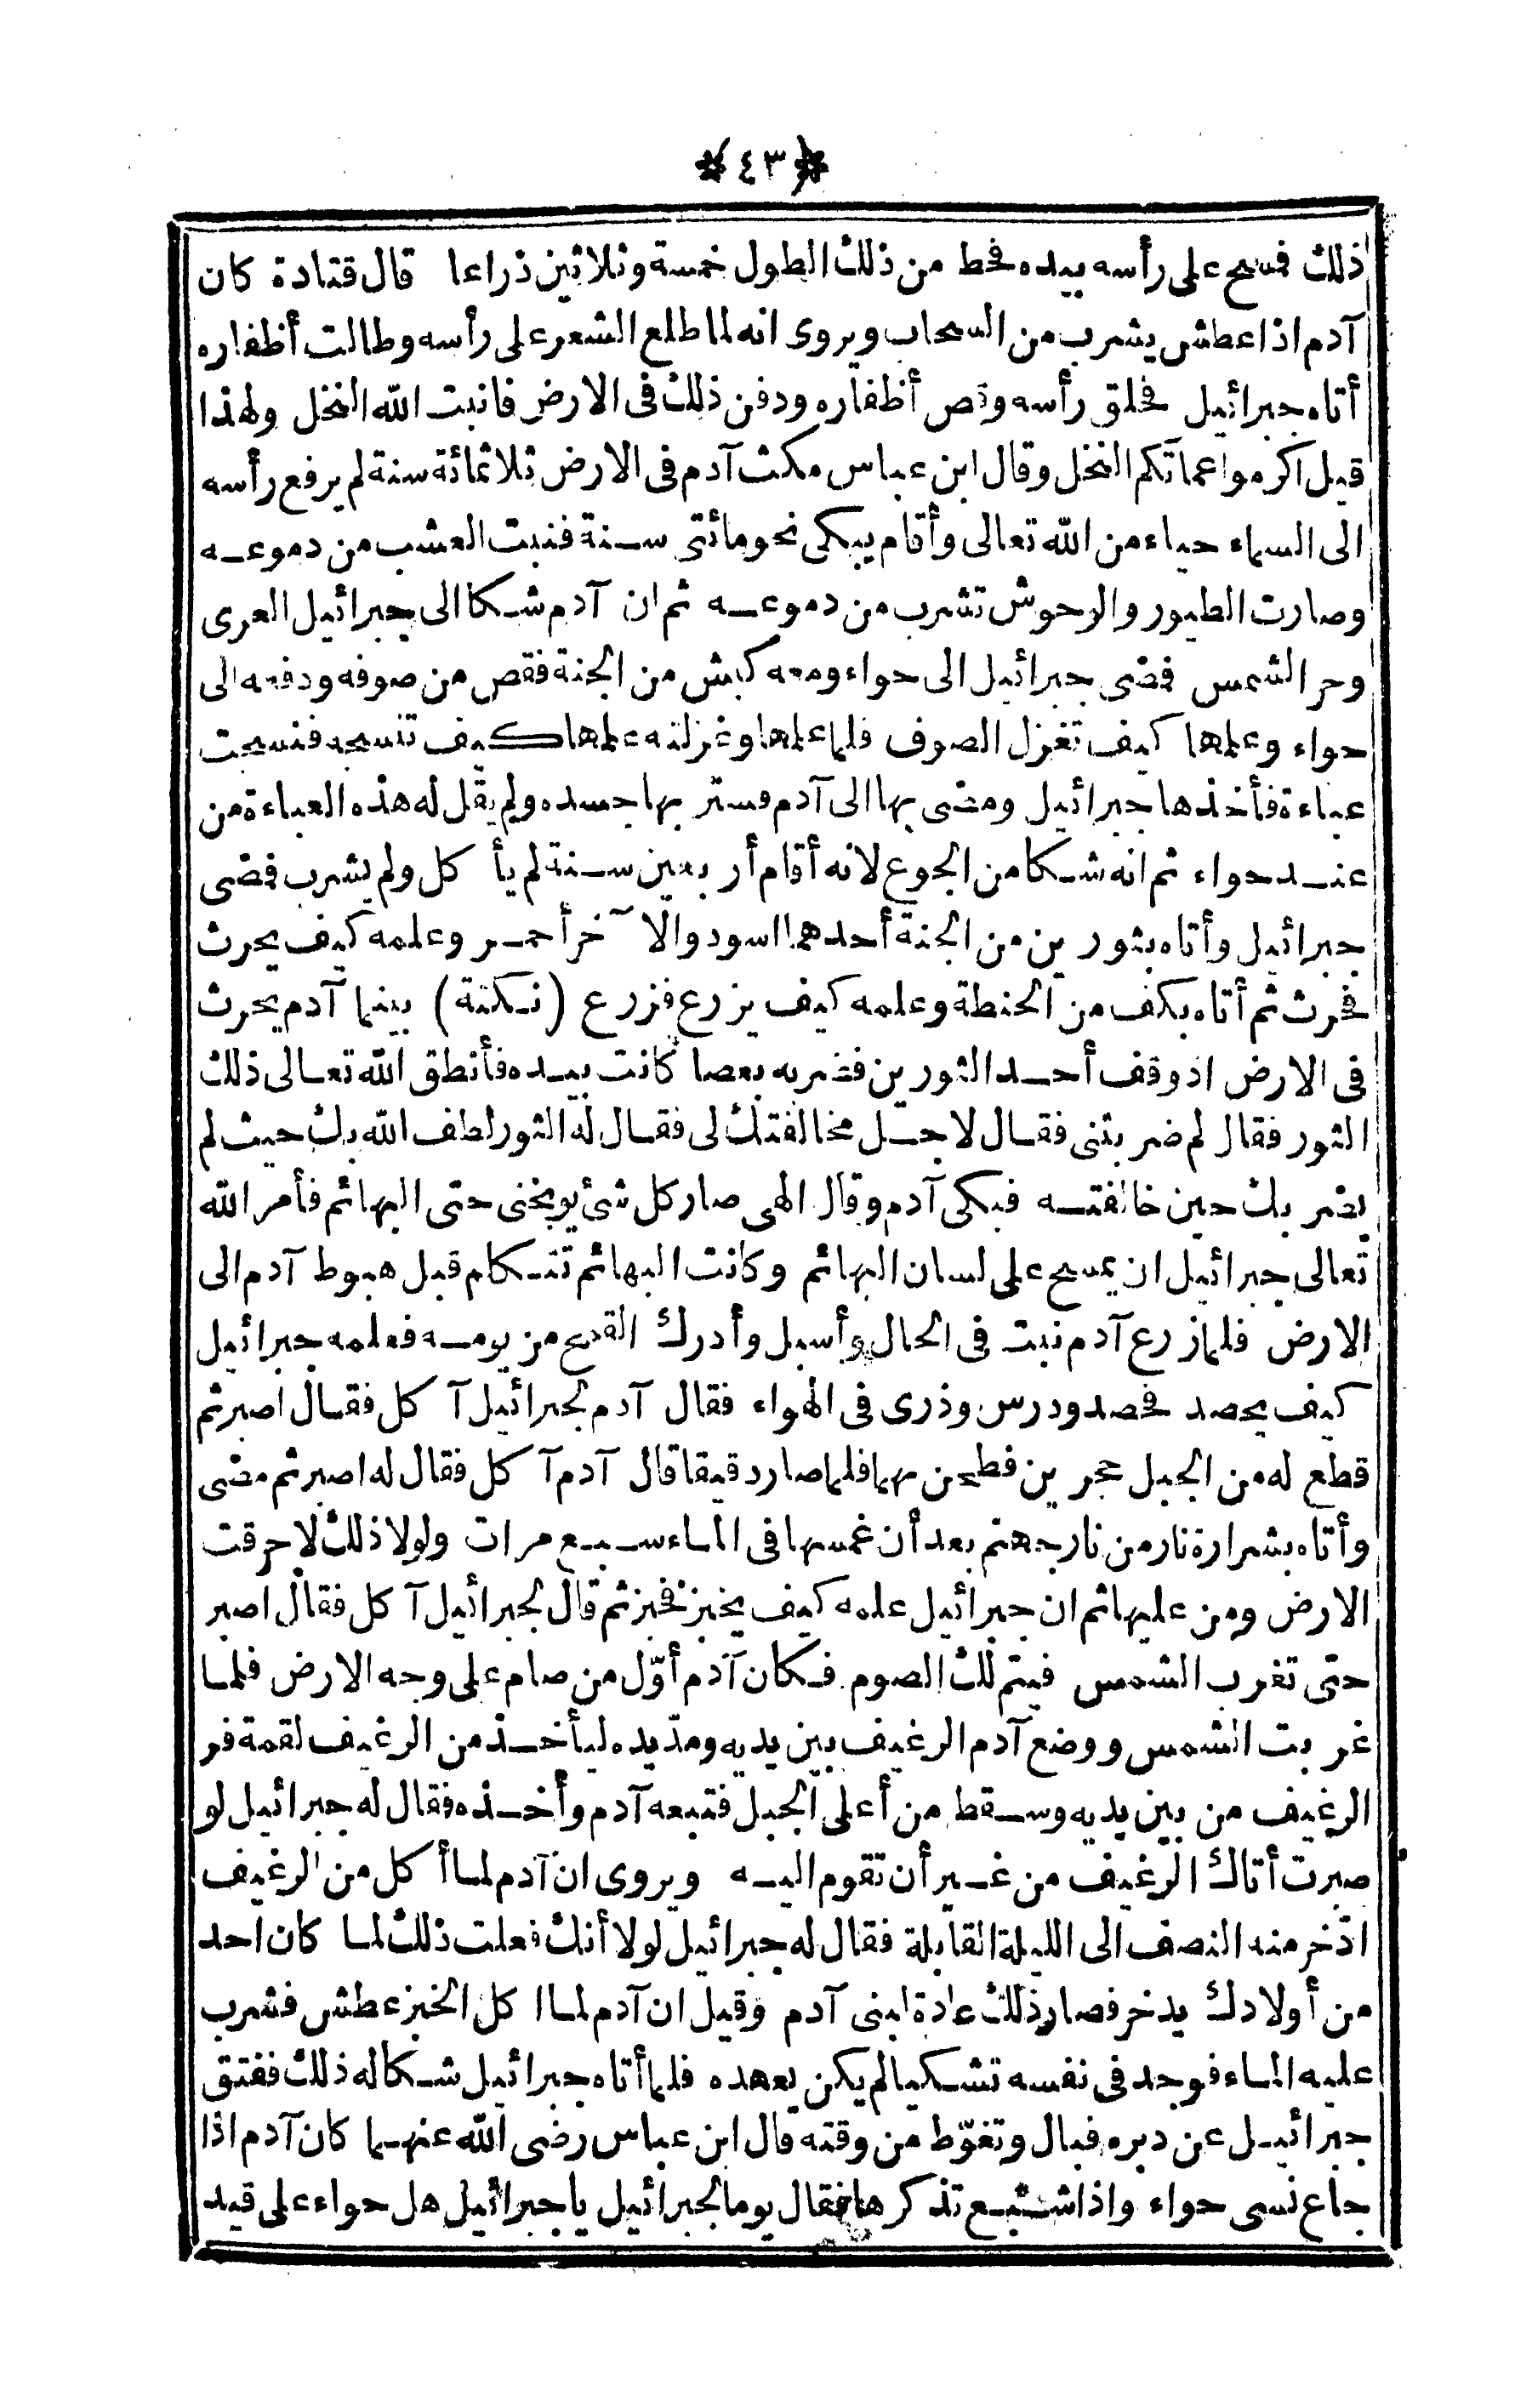 ﴿٤٣﴾
ذلك فمسح على رأسه بيده فحط من ذلك الطول خمسة وثلاثين ذراعا قال قتادة كان
آدم اذا عطش يشرب من السحاب ويروى انه لما طلع الشعر على رأسه وطالت أظفاره
أتاه جبرائيل فحلق رأسه وقص أظفاره ودفن ذلك فى الارض فانبت الله النخل ولهذا
قيل اكرموا عماتكم النخل وقال ابن عباس مكث آدم فى الارض ثلاثمائة سنة لم يرفع رأسه
الى السماء حياء من الله تعالى وأقام يبكى نحو مائتى سنة فنبت العشب من دموعه
وصارت الطيور والوحوش تشرب من دموعه ثم ان آدم شكا الى جبرائيل العرى
وحر الشمس فمضى جبرائيل الى حواء ومعه كبش من الجنة فقص من صوفه ودفعه الى
حواء وعلمها كيف تغزل الصوف فلما علمها وغزلته علمها كيف تنسجه فنسجت
عباءة فأخذها جبرائيل ومضى بها الى آدم فستر بها جسده ولم يقل له هذه العباءة من
عند حواء ثم انه شكا من الجوع لانه أقام أربعين سنة لم يأكل ولم يشرب فمضى
جبرائيل وأتاه بثورين من الجنة أحدهما اسود والآخر أحمر وعلمه كيف يحرث
فحرث ثم أتاه بكف من الحنطة وعلمه كيف يزرع فزرع (نكتة) بينما آدم يحرث
فى الارض اذ وقف أحد الثورين فضربه بعصا كانت بيده فأنطق الله تعالى ذلك
الثور فقال لم ضربتنى فقال لاجل مخالفتك لى فقال له الثور لطف الله بك حيث لم
يضربك حين خالفته فبكى آدم وقال الهى صار كل شئ يوبخنى حتى البهائم فأمر الله
تعالى جبرائيل ان يمسح على لسان البهائم وكانت البهائم تتكلم قبل هبوط آدم الى
الارض فلما زرع آدم نبت فى الحال وأسبل وأدرك القمح من يومه فعلمه جبرائيل
كيف يحصد فحصد ودرس وذرى فى الهواء فقال آدم لجبرائيل آكل فقال اصبر ثم
قطع له من الجبل حجرين فطحن بهما فلما صار دقيقا قال آدم آكل فقال له اصبر ثم مضى
وأتاه بشرارة نار من نار جهنم بعد أن غمسها فى الماء سبع مرات ولولا ذلك لاحرقت
الارض ومن عليها ثم ان جبرائيل علمه كيف يخبز فخبز ثم قال لجبرائيل آكل فقال اصبر
حتى تغرب الشمس فيتم لك الصوم فكان آدم أوّل من صام على وجه الارض فلما
غربت الشمس ووضع آدم الرغيف بين يديه ومدّ يده ليأخذ من الرغيف لقمة فر
الرغيف من بين يديه وسقط من أعلى الجبل فتبعه آدم وأخذه فقال له جبرائيل لو
صبرت أتاك الرغيف من غير أن تقوم اليه ويروى ان آدم لما أكل من الرغيف
ادّخر منه النصف الى الليلة القابلة فقال له جبرائيل لولا أنك فعلت ذلك لما كان احد
من أولادك يدخر فصار ذلك عادة لبنى آدم وقيل ان آدم لما اكل الخبز عطش فشرب
عليه الماء فوجد فى نفسه تشكيا لم يكن يعهده فلما أتاه جبرائيل شكا له ذلك ففتق
جبرائيل عن دبره فبال وتغوّط من وقته قال ابن عباس رضى الله عنهما كان آدم اذا
جاع نسى حواء واذا شبع تذكرها فقال يوما لجبرائيل يا جبرائيل هل حواء على قيد